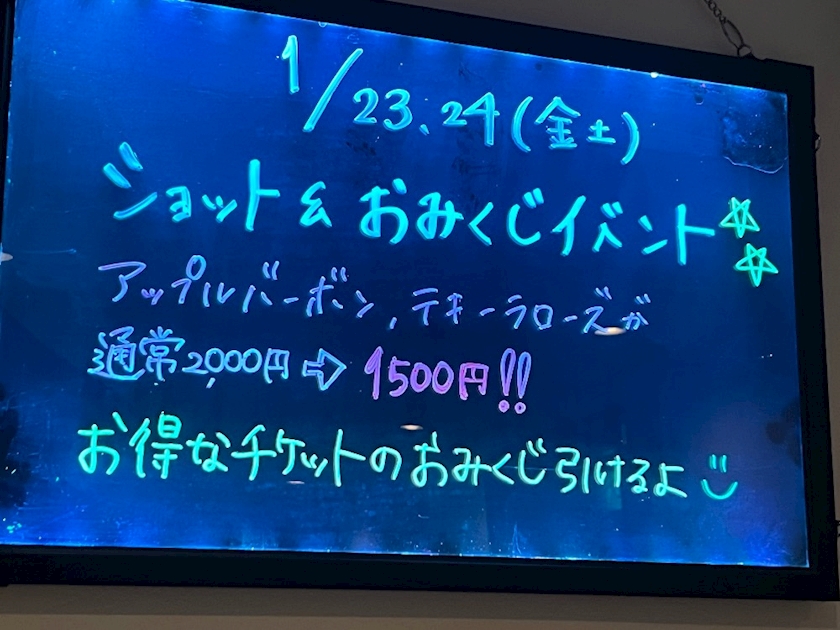 1/23、24(金土)
ショット&おみくじイベント☆☆
アップルバーボン,テキーラローズが
通常2,000円⇨1500円!!
お得なチケットのおみくじ引けるよ